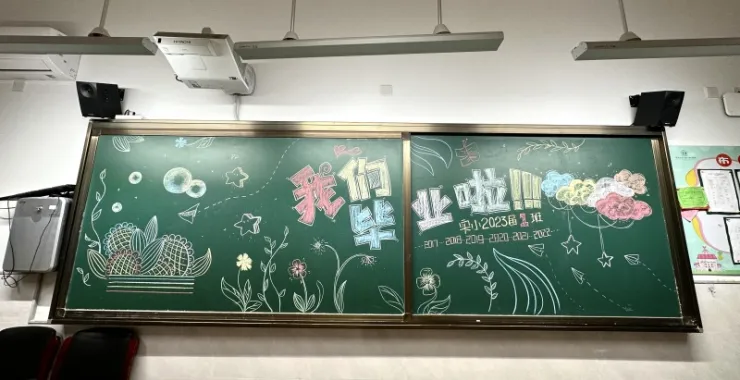 我们
毕业啦!!!
实小2023届2班
2017-2018-2019-2020-2021-2022-